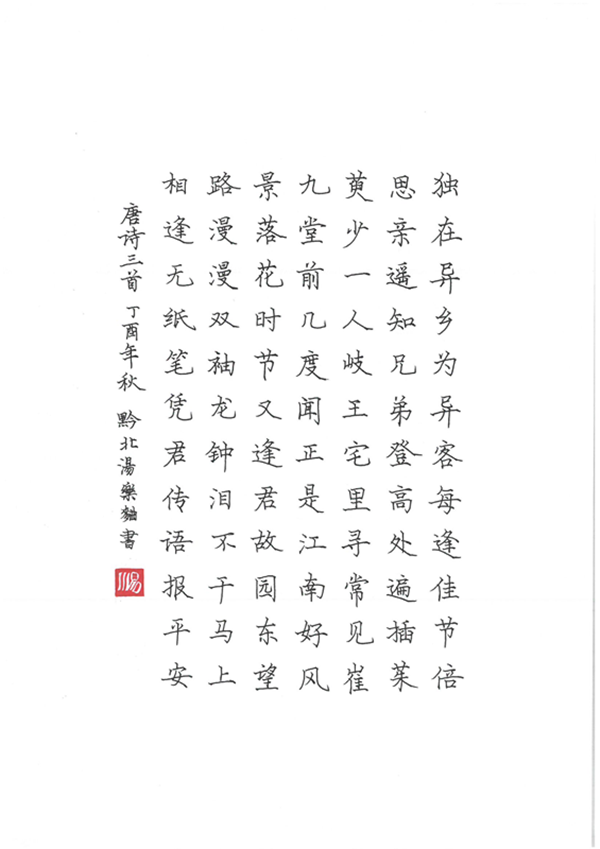 独在异乡为异客每逢佳节倍
思亲遥知兄弟登高处遍插茱
萸少一人岐王宅里寻常见崔
九堂前几度闻正是江南好风
景落花时节又逢君故园东望
路漫漫双袖龙钟泪不干马上
相逢无纸笔凭君传语报平安
唐诗三首 丁酉年秋 黔北湯樂書
湯